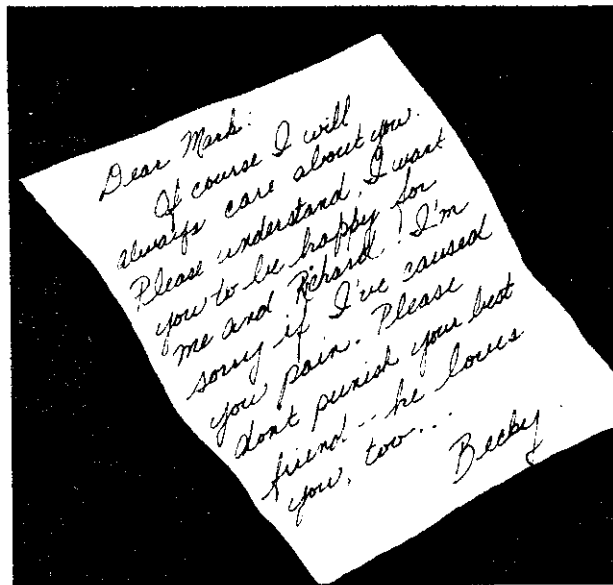 Dear Mark:
Of course I will
always care about you.
Please understand, I want
you to be happy for
me and Richard! I'm
sorry if I've caused
you pain. Please
don't punish your best
friend -- he loves
you, too...
Becky